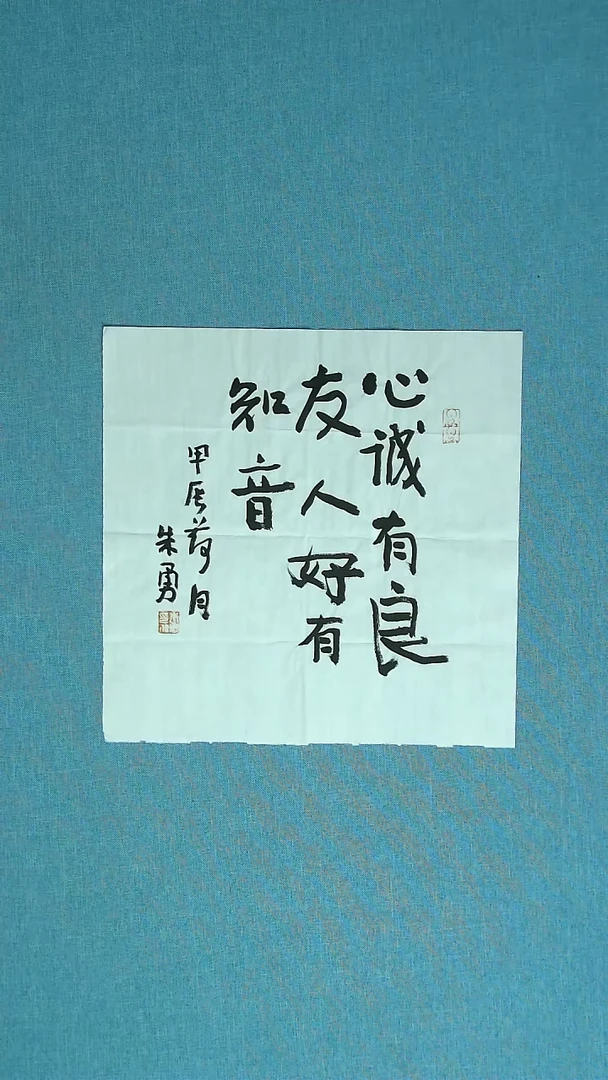 心诚有良
友人好有
知音
甲辰荷月
朱勇